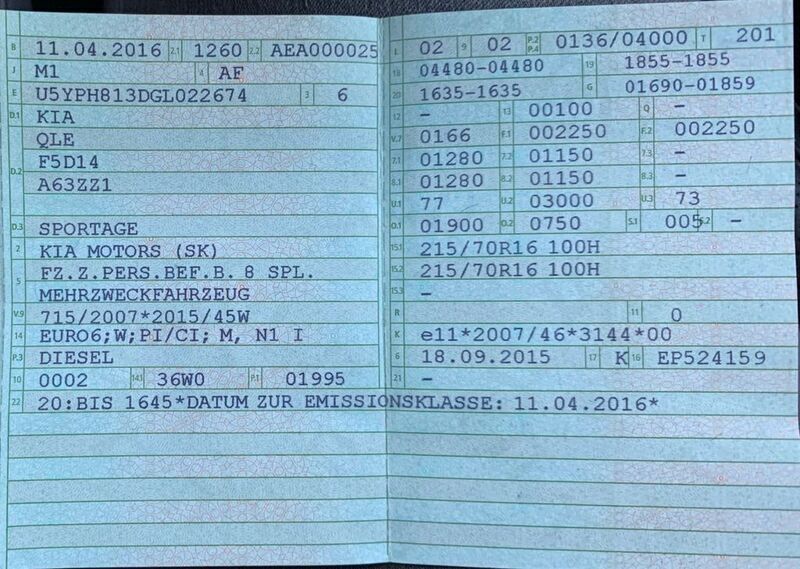 B 11.04.2016 2.1 1260 2.2 AEA000025
J M1 4 AF
E U5YPH813DGL022674 3 6
D.1 KIA
QLE
D.2 F5D14
A63ZZ1
D.3 SPORTAGE
2 KIA MOTORS (SK)
5 FZ.Z.PERS.BEF.B. 8 SPL.
MEHRZWECKFAHRZEUG
V.9 715/2007*2015/45W
14 EURO6;W;PI/CI; M, N1 I
P.3 DIESEL
10 0002 14.1 36W0 P.1 01995
L 02 9 02 P.2 P.4 0136/04000 T 201
18 04480-04480 19 1855-1855
20 1635-1635 G 01690-01859
12 - 13 00100 Q -
V.7 0166 F.1 002250 F.2 002250
7.1 01280 7.2 01150 7.3 -
8.1 01280 8.2 01150 8.3 -
U.1 77 U.2 03000 U.3 73
O.1 01900 O.2 0750 S.1 005 S.2 -
15.1 215/70R16 100H
15.2 215/70R16 100H
15.3 -
R 11 0
K e11*2007/46*3144*00
6 18.09.2015 17 K 16 EP524159
21 -
22 20:BIS 1645*DATUM ZUR EMISSIONSKLASSE: 11.04.2016*